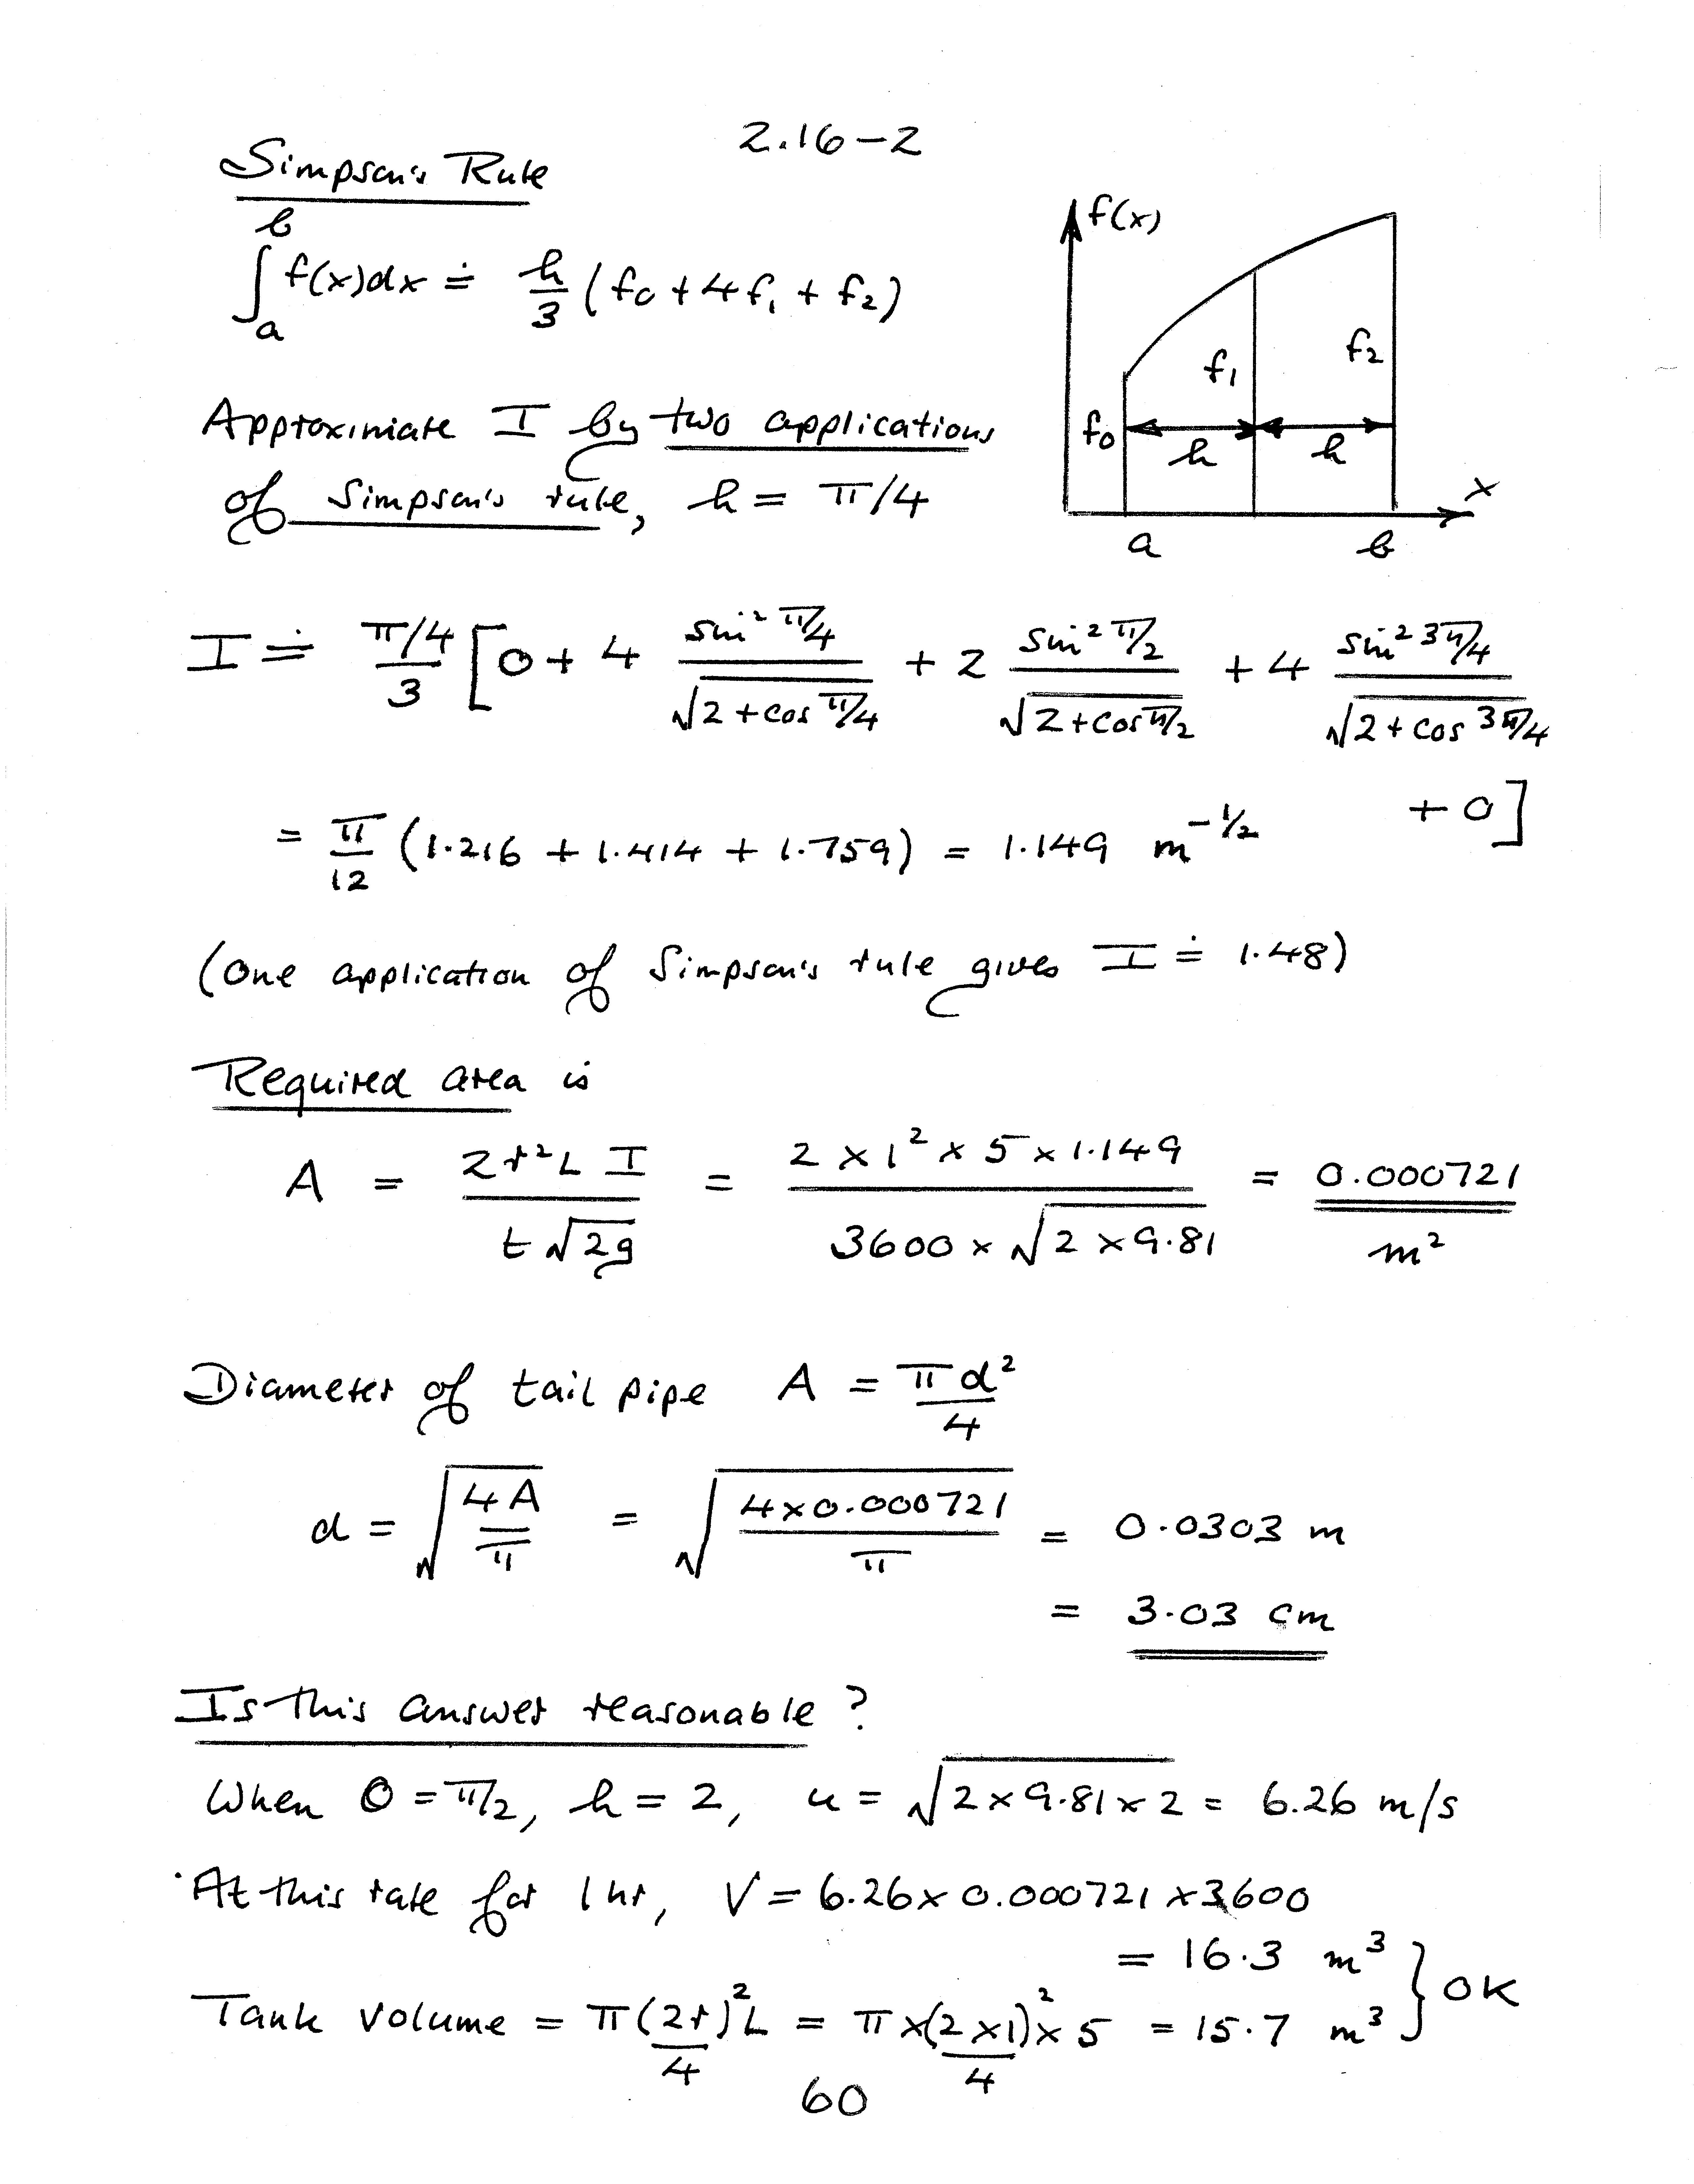 2.16-2
Simpson's Rule
∫_a^b f(x)dx ≐ h/3 (f₀ + 4f₁ + f₂)
f(x)
f₀ f₁ f₂
h h
x
a b
Approximate I by two applications
of Simpson's rule, h = π/4
I ≐ (π/4)/3 [0 + 4 sin² π/4 / √(2 + cos π/4) + 2 sin² π/2 / √(2 + cos π/2) + 4 sin² 3π/4 / √(2 + cos 3π/4)
+ 0]
= π/12 (1.216 + 1.414 + 1.759) = 1.149 m^(-1/2)
(One application of Simpson's rule gives I ≐ 1.48)
Required area is
A = 2r²L I / t√(2g) = 2 × 1² × 5 × 1.149 / 3600 × √(2 × 9.81) = 0.000721
m²
Diameter of tail pipe A = πd²/4
d = √(4A/π) = √(4×0.000721/π) = 0.0303 m
= 3.03 cm
Is this answer reasonable?
When θ = π/2, h = 2, u = √(2×9.81×2) = 6.26 m/s
At this rate for 1 hr, V = 6.26 × 0.000721 × 3600
= 16.3 m³
Tank volume = π(2r)²/4 L = π×(2×1)²/4 × 5 = 15.7 m³ } OK
60